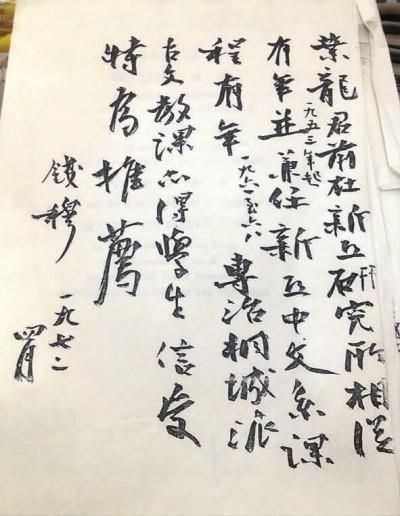 葉龍君前在新亞研究所相從
有年一九五三年起並兼任新亞中文系課
程有年一九六至六八專治桐城派
古文教課亦得學生信受
特為推薦
錢穆
一九七二
四月